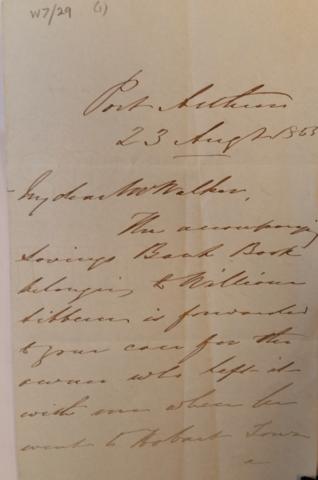 W7/29 (1)
Port Arthur
23 Augt 185
My dear Mr Walker,
The accompanying
Savings Bank Book
belonging to William
is forwarded
to your care for the
owner who left it
with me when he
went to Hobart Town
a